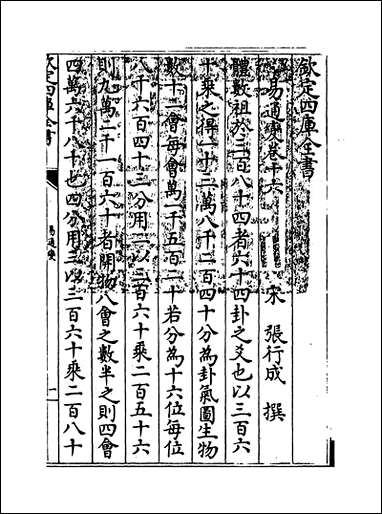 欽定四庫全書
易通變卷十六　宋　張行成　撰
體數祖於三百八十四者六十四卦之爻也以三百六
十乘之得一十三萬八千二百四十分為卦氣圖生物
數十二會每會萬一千五百二十若分為十六位每位
八千六百四十三分用二以三百六十乘二百五十六
則九萬二千一百六十者開物八會之數半之則四會
四萬六千八十也四分用三以三百六十乘二百八十
欽定四庫全書　易通變　一